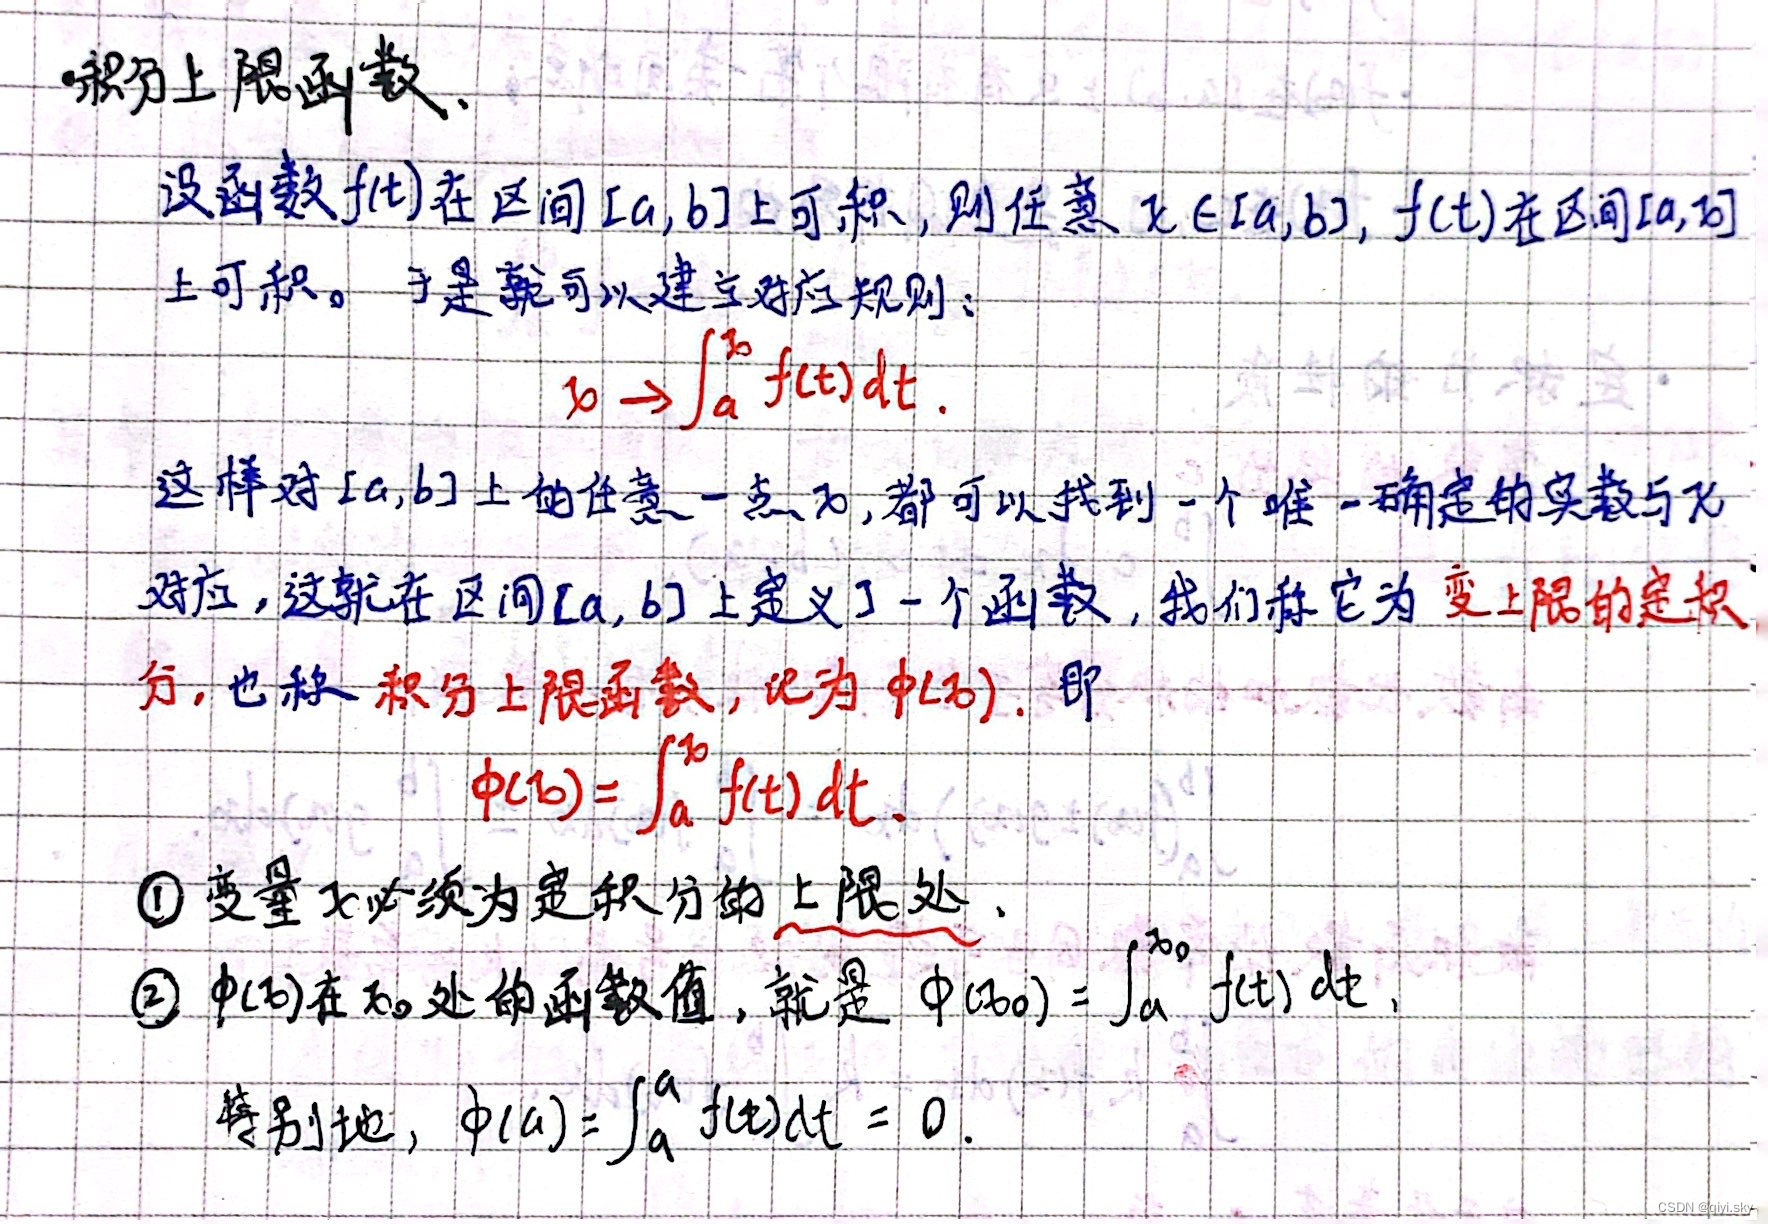 ·积分上限函数、
设函数f(t)在区间[a,b]上可积,则任意 x∈[a,b], f(t)在区间[a,x]
上可积。 于是就可以建立对应规则:
x→∫ₐˣ f(t)dt.
这样对[a,b]上的任意一点x,都可以找到一个唯一确定的实数与x
对应,这就在区间[a,b]上定义了一个函数,我们称它为变上限的定积
分,也称积分上限函数,记为 φ(x). 即
φ(x)=∫ₐˣ f(t)dt.
① 变量x必须为定积分的上限处.
② φ(x)在x₀处的函数值,就是 φ(x₀)=∫ₐˣ⁰ f(t)dt,
特别地, φ(a)=∫ₐᵃ f(t)dt = 0.
CSDN @qiyi.sky